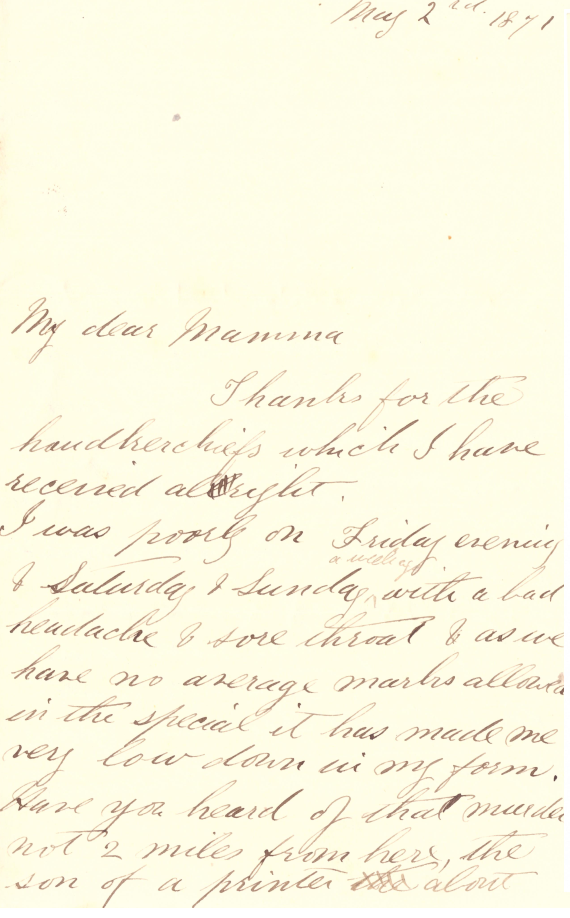 May 2nd. 1871
My dear Mamma
Thanks for the
handkerchiefs which I have
received all right.
I was poorly on Friday evening
a week ago
& Saturday & Sunday with a bad
headache & sore throat & as we
have no average marks allowed
in the special it has made me
very low down in my form.
Have you heard of that murder
not 2 miles from here, the
son of a printer about